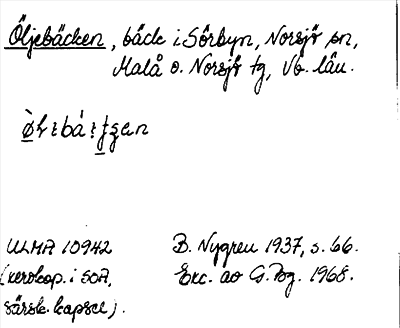 Öljebäcken, bäck i Sörbyn, Norsjö sn,
Malå o. Norsjö tg, Vb. län.
ULMA 10942
(xerokop. i SOA,
särsk. kapsel).
B. Nygren 1937, s. 66.
Exc. av G. Pg. 1968.